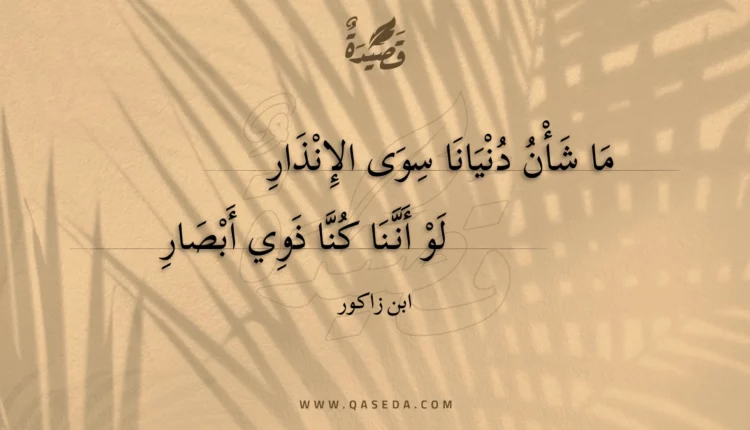 قَصِيدَةٌ
مَا شَأْنُ دُنْيَانَا سِوَى الإِنْذَارِ
لَوْ أَنَّنَا كُنَّا ذَوِي أَبْصَارِ
ابن زاكور
WWW.QASEDA.COM